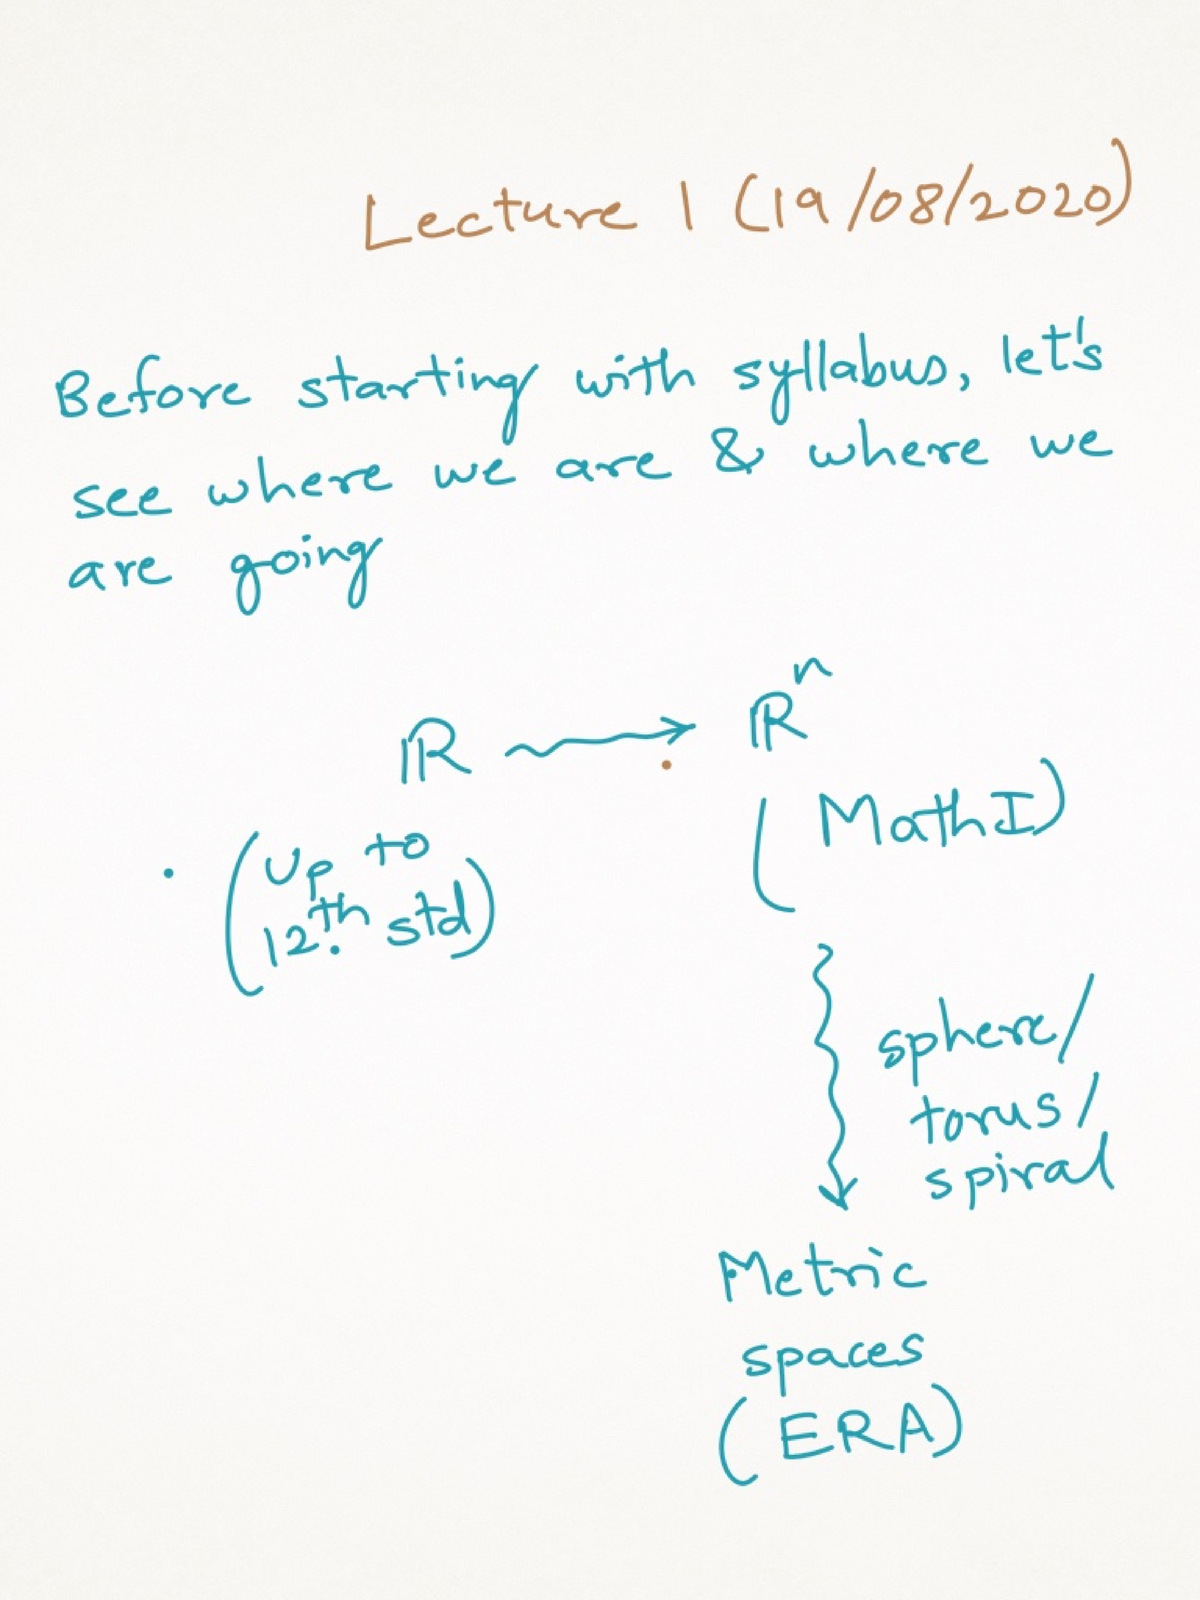 Lecture 1 (19/08/2020)
Before starting with syllabus, let's
see where we are & where we
are going
ℝ → ℝⁿ
(Math I)
(Up to
12th std)
sphere/
torus/
spiral
Metric
spaces
(ERA)